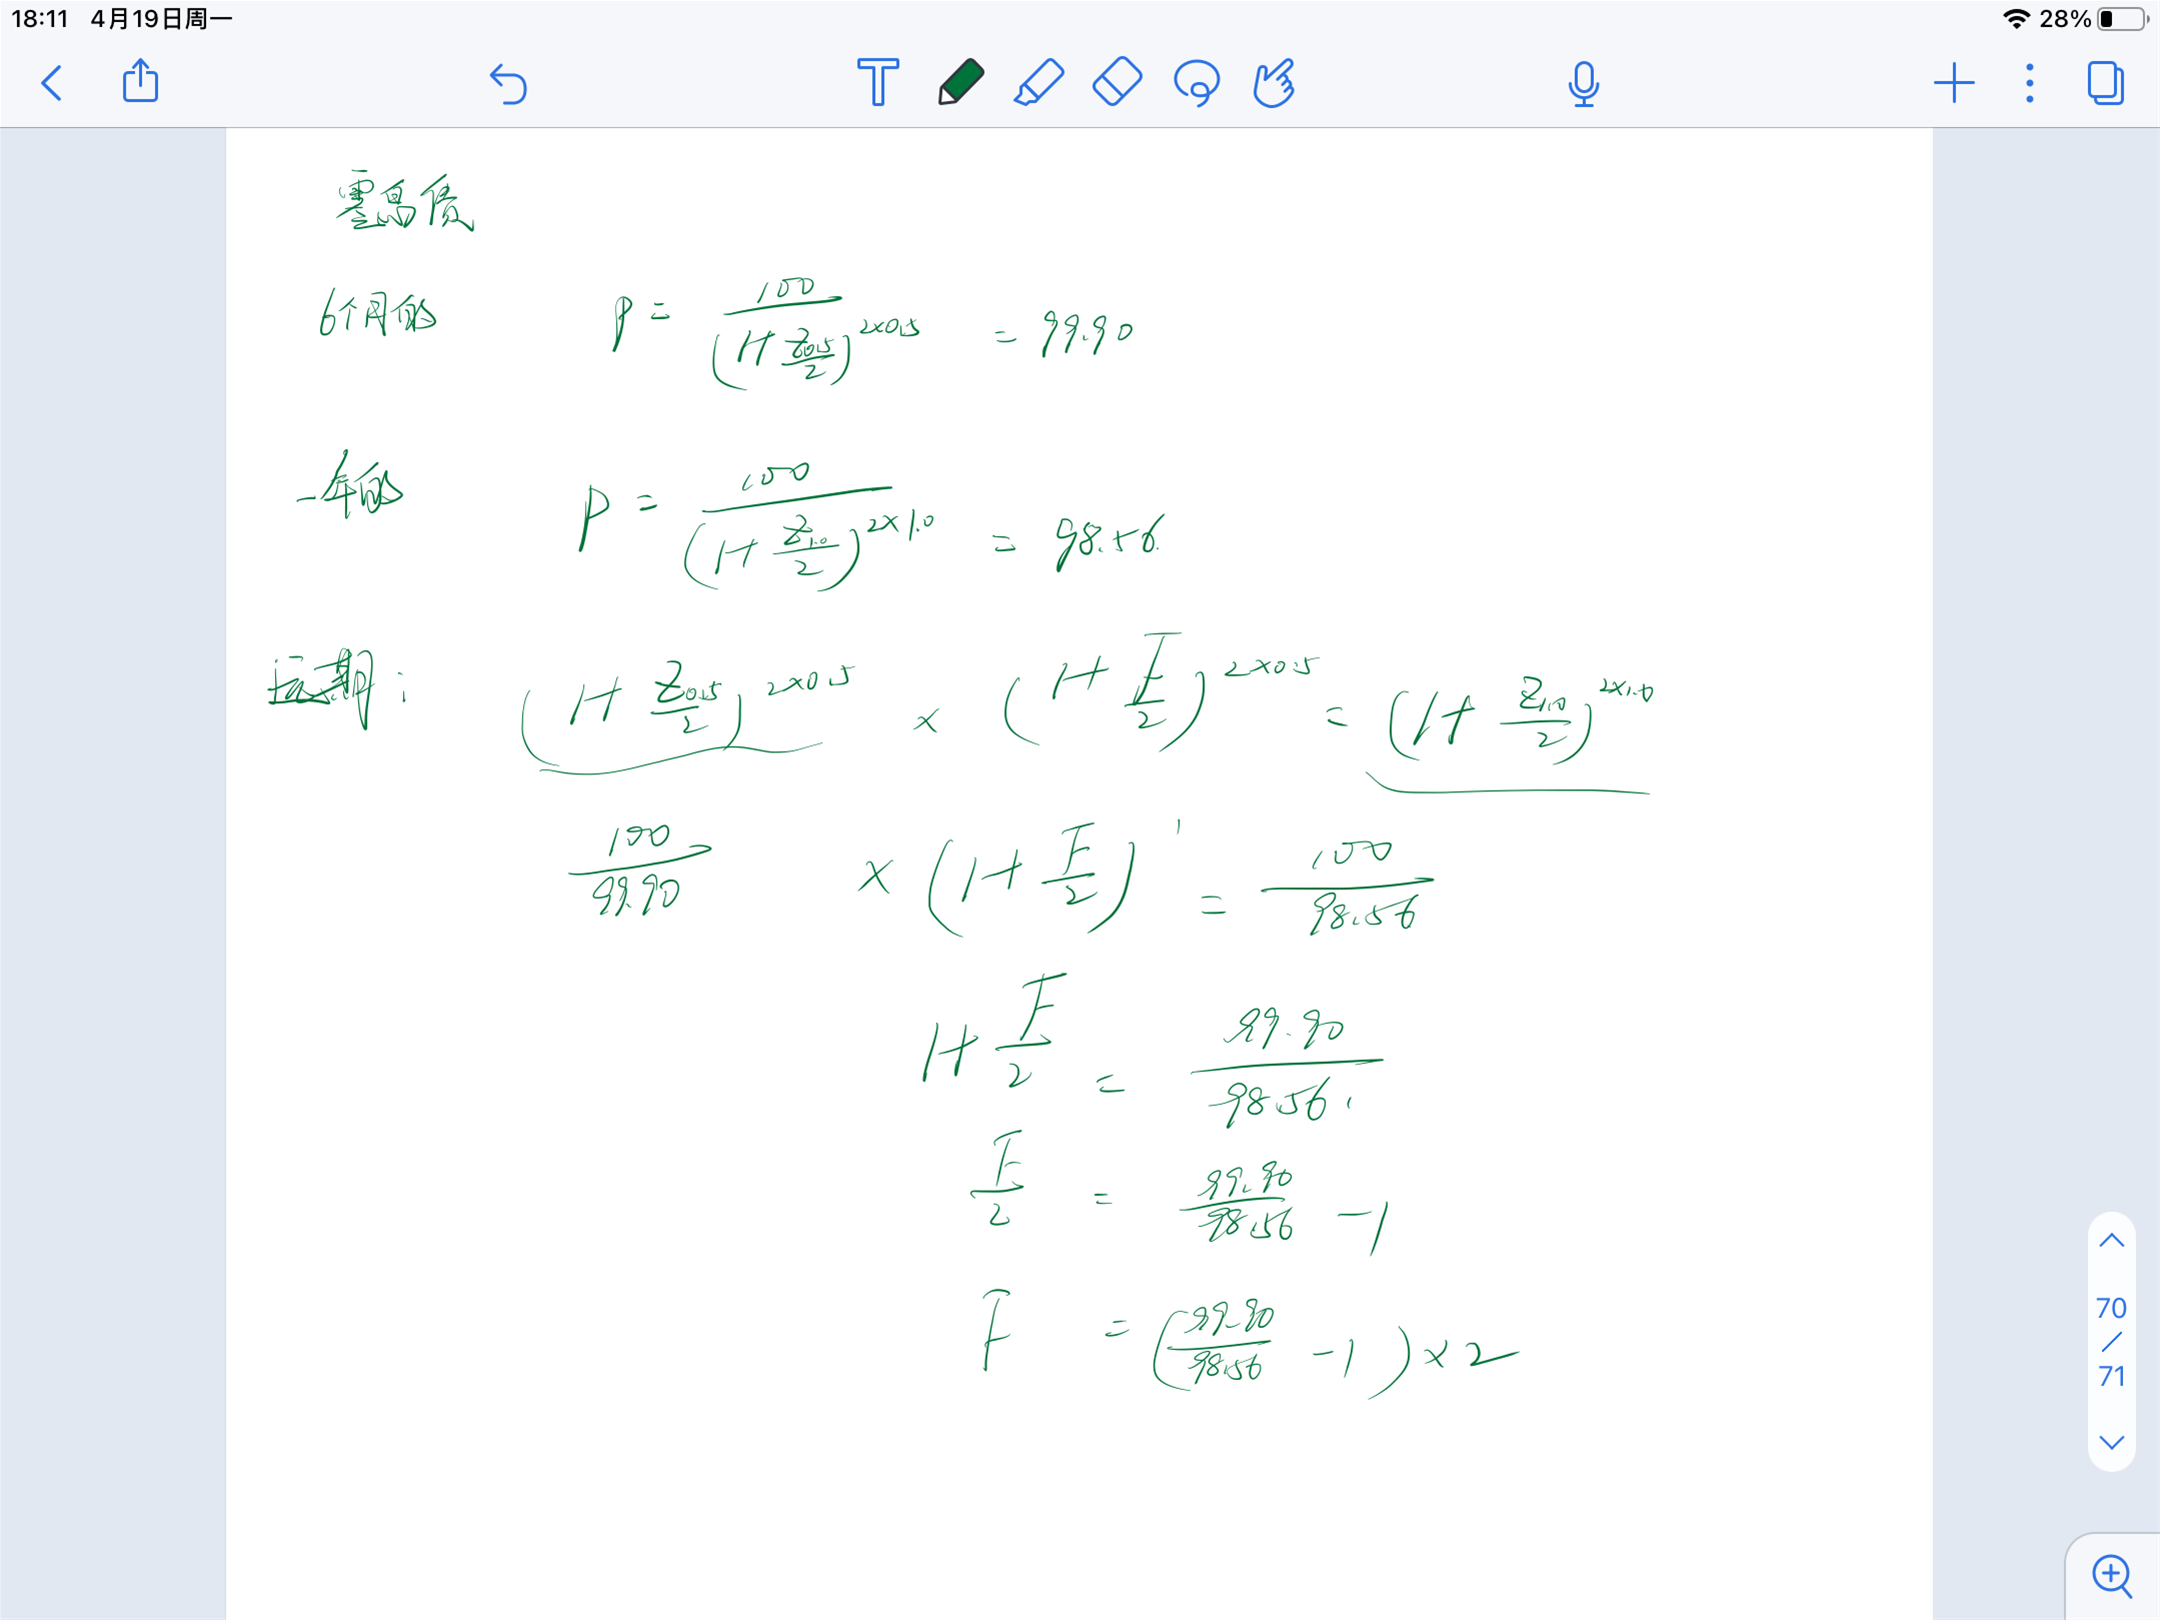 18:11 4月19日周一 28%
零息债
6个月的 P = 100 / (1+ Z0.5/2)^2×0.5 = 99.90
一年的 P = 100 / (1+ Z1.0/2)^2×1.0 = 98.56
远期: (1+ Z0.5/2)^2×0.5 × (1+ F/2)^2×0.5 = (1+ Z1.0/2)^2×1.0
100/99.90 × (1+ F/2)^1 = 100/98.56
1+ F/2 = 99.90/98.56
F/2 = 99.90/98.56 -1
F = (99.90/98.56 -1) ×2
70
/
71